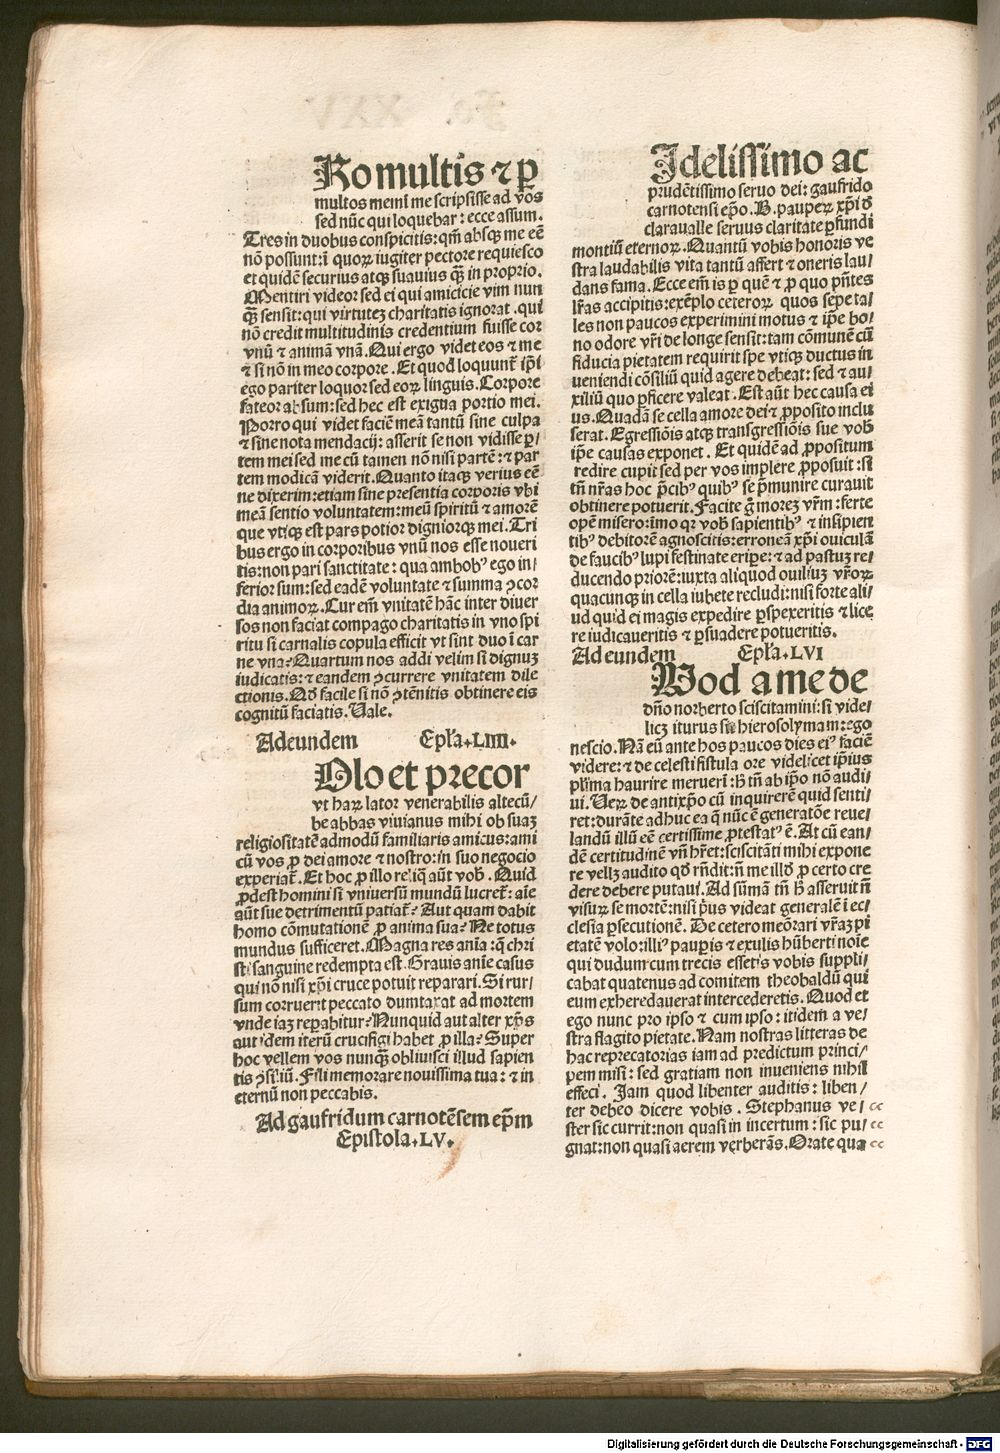 Ro multis ⁊ ꝑ
multos memĩ me scripsisse ad vos
sed nũc qui loquebar : ecce assum.
Tres in duobus conspicitis: qm̃ absqꝫ me eẽ
nõ possunt:ĩ quoꝝ iugiter pectore requiesco
et quidẽ securius atqꝫ suauius q̃ꝫ in proprio.
Mentiri videor sed ei qui amicicie vim nun
q̃ꝫ sensit: qui virtuteꝫ charitatis ignorat .qui
nõ credit multitudinis credentium fuisse cor
vnũ ⁊ animã vnã. Qui ergo videt eos ⁊ me
⁊ si nõ in meo corpore . Et quod loquunt̃ ip̃i
ego pariter loquor sed eoꝝ linguis. Corpore
fateor absum: sed hec est exigua portio mei.
Porro qui videt faciẽ meã tantũ sine culpa
⁊ sine nota mendacij: asserit se non vidisse ꝑ/
tem mei sed me cũ tamen nõ nisi partẽ: ⁊ par
tem modicã viderit. Quanto itaqꝫ verius eẽ
ne dixerim: etiam sine presentia corporis vbi
meã sentio voluntatem: meũ spiritũ ⁊ amorẽ
que vtiqꝫ est pars potior digniorqꝫ mei. Tri
bus ergo in corporibus vnũ nos esse noueri
tis: non pari sanctitate : qua ambobꝰ ego in/
ferior sum: sed eadẽ voluntate ⁊ summa ꝯcor
dia animoꝝ. Cur em̃ vnitatẽ hãc inter diuer
sos non faciat compago charitatis in vno spi
ritu si carnalis copula efficit vt sint duo ĩ car
ne vna? Quartum nos addi velim si dignuꝫ
iudicatis: ⁊ eandem ꝯcurrere vnitatem dile
ctionis. Qd̃ facile si nõ ꝯtẽnitis obtinere eis
cognitũ faciatis. Uale.
Ad eundem Epl̃a.LIIII.
Olo et precor
vt haꝝ lator venerabilis altecũ/
be abbas viuianus mihi ob suaꝫ
religiositatẽ admodũ familiaris amicus: ami
cũ vos ꝓ dei amore ⁊ nostro: in suo negocio
experiat̃. Et hoc ꝓ illo reliq̃ aũt vob̃. Quid
ꝓdest homini si vniuersũ mundũ lucret̃: aĩe
aũt sue detrimentũ patiat̃? Aut quam dabit
homo cõmutationẽ ꝓ anima sua? Ne totus
mundus sufficeret. Magna res anĩa : q̃ chri
sti sanguine redempta est. Grauis anĩe casus
qui nõ nisi xp̃i cruce potuit reparari. Si rur/
sum corruerit peccato dumtaxat ad mortem
vnde iaꝫ reꝑabitur? Nunquid aut alter xp̃s
aut idem iterũ crucifigi habet ꝓ illa? Super
hoc vellem vos nunq̃ꝫ obliuisci illud sapien
tis ꝯsiliũ. Fili memorare nouissima tua: ⁊ in
eternũ non peccabis.
Ad gaufridum carnotẽsem ep̃m
Epistola.LV.
Idelissimo ac
prudẽtissimo seruo dei: gaufrido
carnotensi ep̃o. B. pauperꝝ xp̃i d̃
claraualle seruus claritate ꝑfundi
montiũ eternoꝝ. Quantũ vobis honoris ve
stra laudabilis vita tantũ affert ⁊ oneris lau/
dans fama. Ecce em̃ is ꝑ quẽ ⁊ ꝓ quo pñtes
lr̃as accipitis: exẽplo ceteroꝝ quos sepe ta/
les non paucos experimini motus ⁊ ip̃e bo/
no odore vr̃i de longe sensit: tam cõmunẽ cũ
fiducia pietatem requirit spe vtiqꝫ ductus in
ueniendi cõsiliũ quid agere debeat: sed ⁊ au/
xiliũ quo ꝑficere valeat . Est aũt hec causa ei
us. Quadã se cella amore dei ⁊ ꝓposito inclu
serat. Egressiõis atqꝫ transgressiõis sue vob̃
ip̃e causas exponet . Et quidẽ ad ꝓpositum
redire cupit sed per vos implere ꝓposuit: si
tñ nr̃as hoc p̃cibꝰ quibꝰ se p̃munire curauit
obtinere potuerit. Facite g̃ moreꝫ vr̃m: ferte
opẽ misero: ĩmo qꝛ vob̃ sapientibꝰ ⁊ insipien
tibꝰ debitorẽ agnoscitis: erroneã xp̃i ouiculã
de faucibꝰ lupi festinate eriꝑe: ⁊ ad pastuꝫ re/
ducendo priorẽ: iuxta aliquod ouiliuꝫ vr̃oꝝ
quacunqꝫ in cella iubete recludi: nisi forte ali/
ud quid ei magis expedire ꝑspexeritis ⁊ lice
re iudicaueritis ⁊ ꝑsuadere potueritis.
Ad eundem Epl̃a.LVI
Uod a me de
dño norberto sciscitamini: si vide/
licꝫ iturus sit hierosolymam: ego
nescio. Nã eũ ante hos paucos dies eiꝰ faciẽ
videre: ⁊ de celesti fistula ore videlicet ip̃ius
pl̃ima haurire meruerĩ: h̃ tñ ab ip̃o nõ audi/
ui. Ueꝝ de antixp̃o cũ inquirerẽ quid senti/
ret: durãte adhuc ea q̃ nũc ẽ generatõe reue/
landũ illũ eẽ certissime ꝓtestatꝰ ẽ. At cũ ean/
dẽ certitudinẽ vñ hr̃et: sciscitãti mihi expone
re velleꝫ audito qd̃ rñdit: ñ me illd̃ ꝓ certo cre
dere debere putaui. Ad sũmã tñ h̃ asseruit ñ
visuꝝ se mortẽ: nisi pꝰus videat generalẽ ĩ ec/
clesia ꝑsecutionẽ. De cetero meõrari vr̃aꝫ pi
etatẽ volo: illiꝰ pauꝑis ⁊ exulis hũberti noĩe
qui dudum cum trecis essetis vobis suppli/
cabat quatenus ad comitem theobaldũ qui
eum exheredauerat intercederetis. Quod et
ego nunc pro ipso ⁊ cum ipso: itidem a ve/
stra flagito pietate. Nam nostras litteras de
hac reprecatorias iam ad predictum princi/
pem misi : sed gratiam non inueniens nihil
effeci . Jam quod libenter auditis : liben/
ter debeo dicere vobis . Stephanus ve/
ster sic currit: non quasi in incertum : sic pu/
gnat: non quasi aerem verberãs. Orate qua
Digitalisierung gefördert durch die Deutsche Forschungsgemeinschaft - DFG